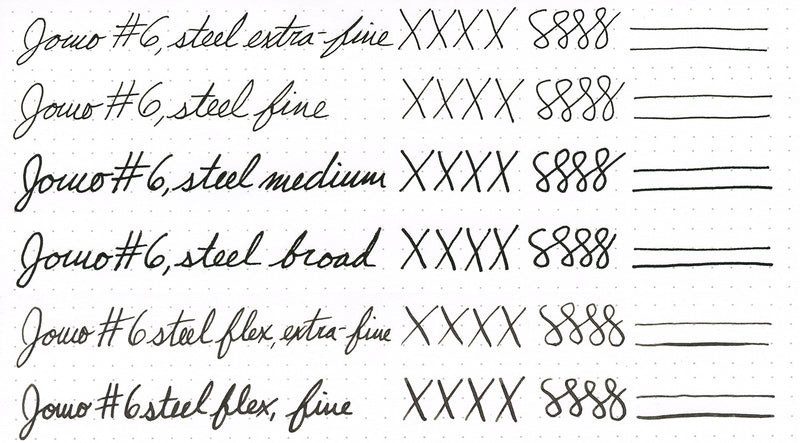 Jowo #6, steel extra-fine XXXX 8888
Jowo #6, steel fine XXXX 8888
Jowo #6, steel medium XXXX 8888
Jowo #6, steel broad XXXX 8888
Jowo #6 steel flex, extra-fine XXXX 8888
Jowo #6 steel flex, fine XXXX 8888